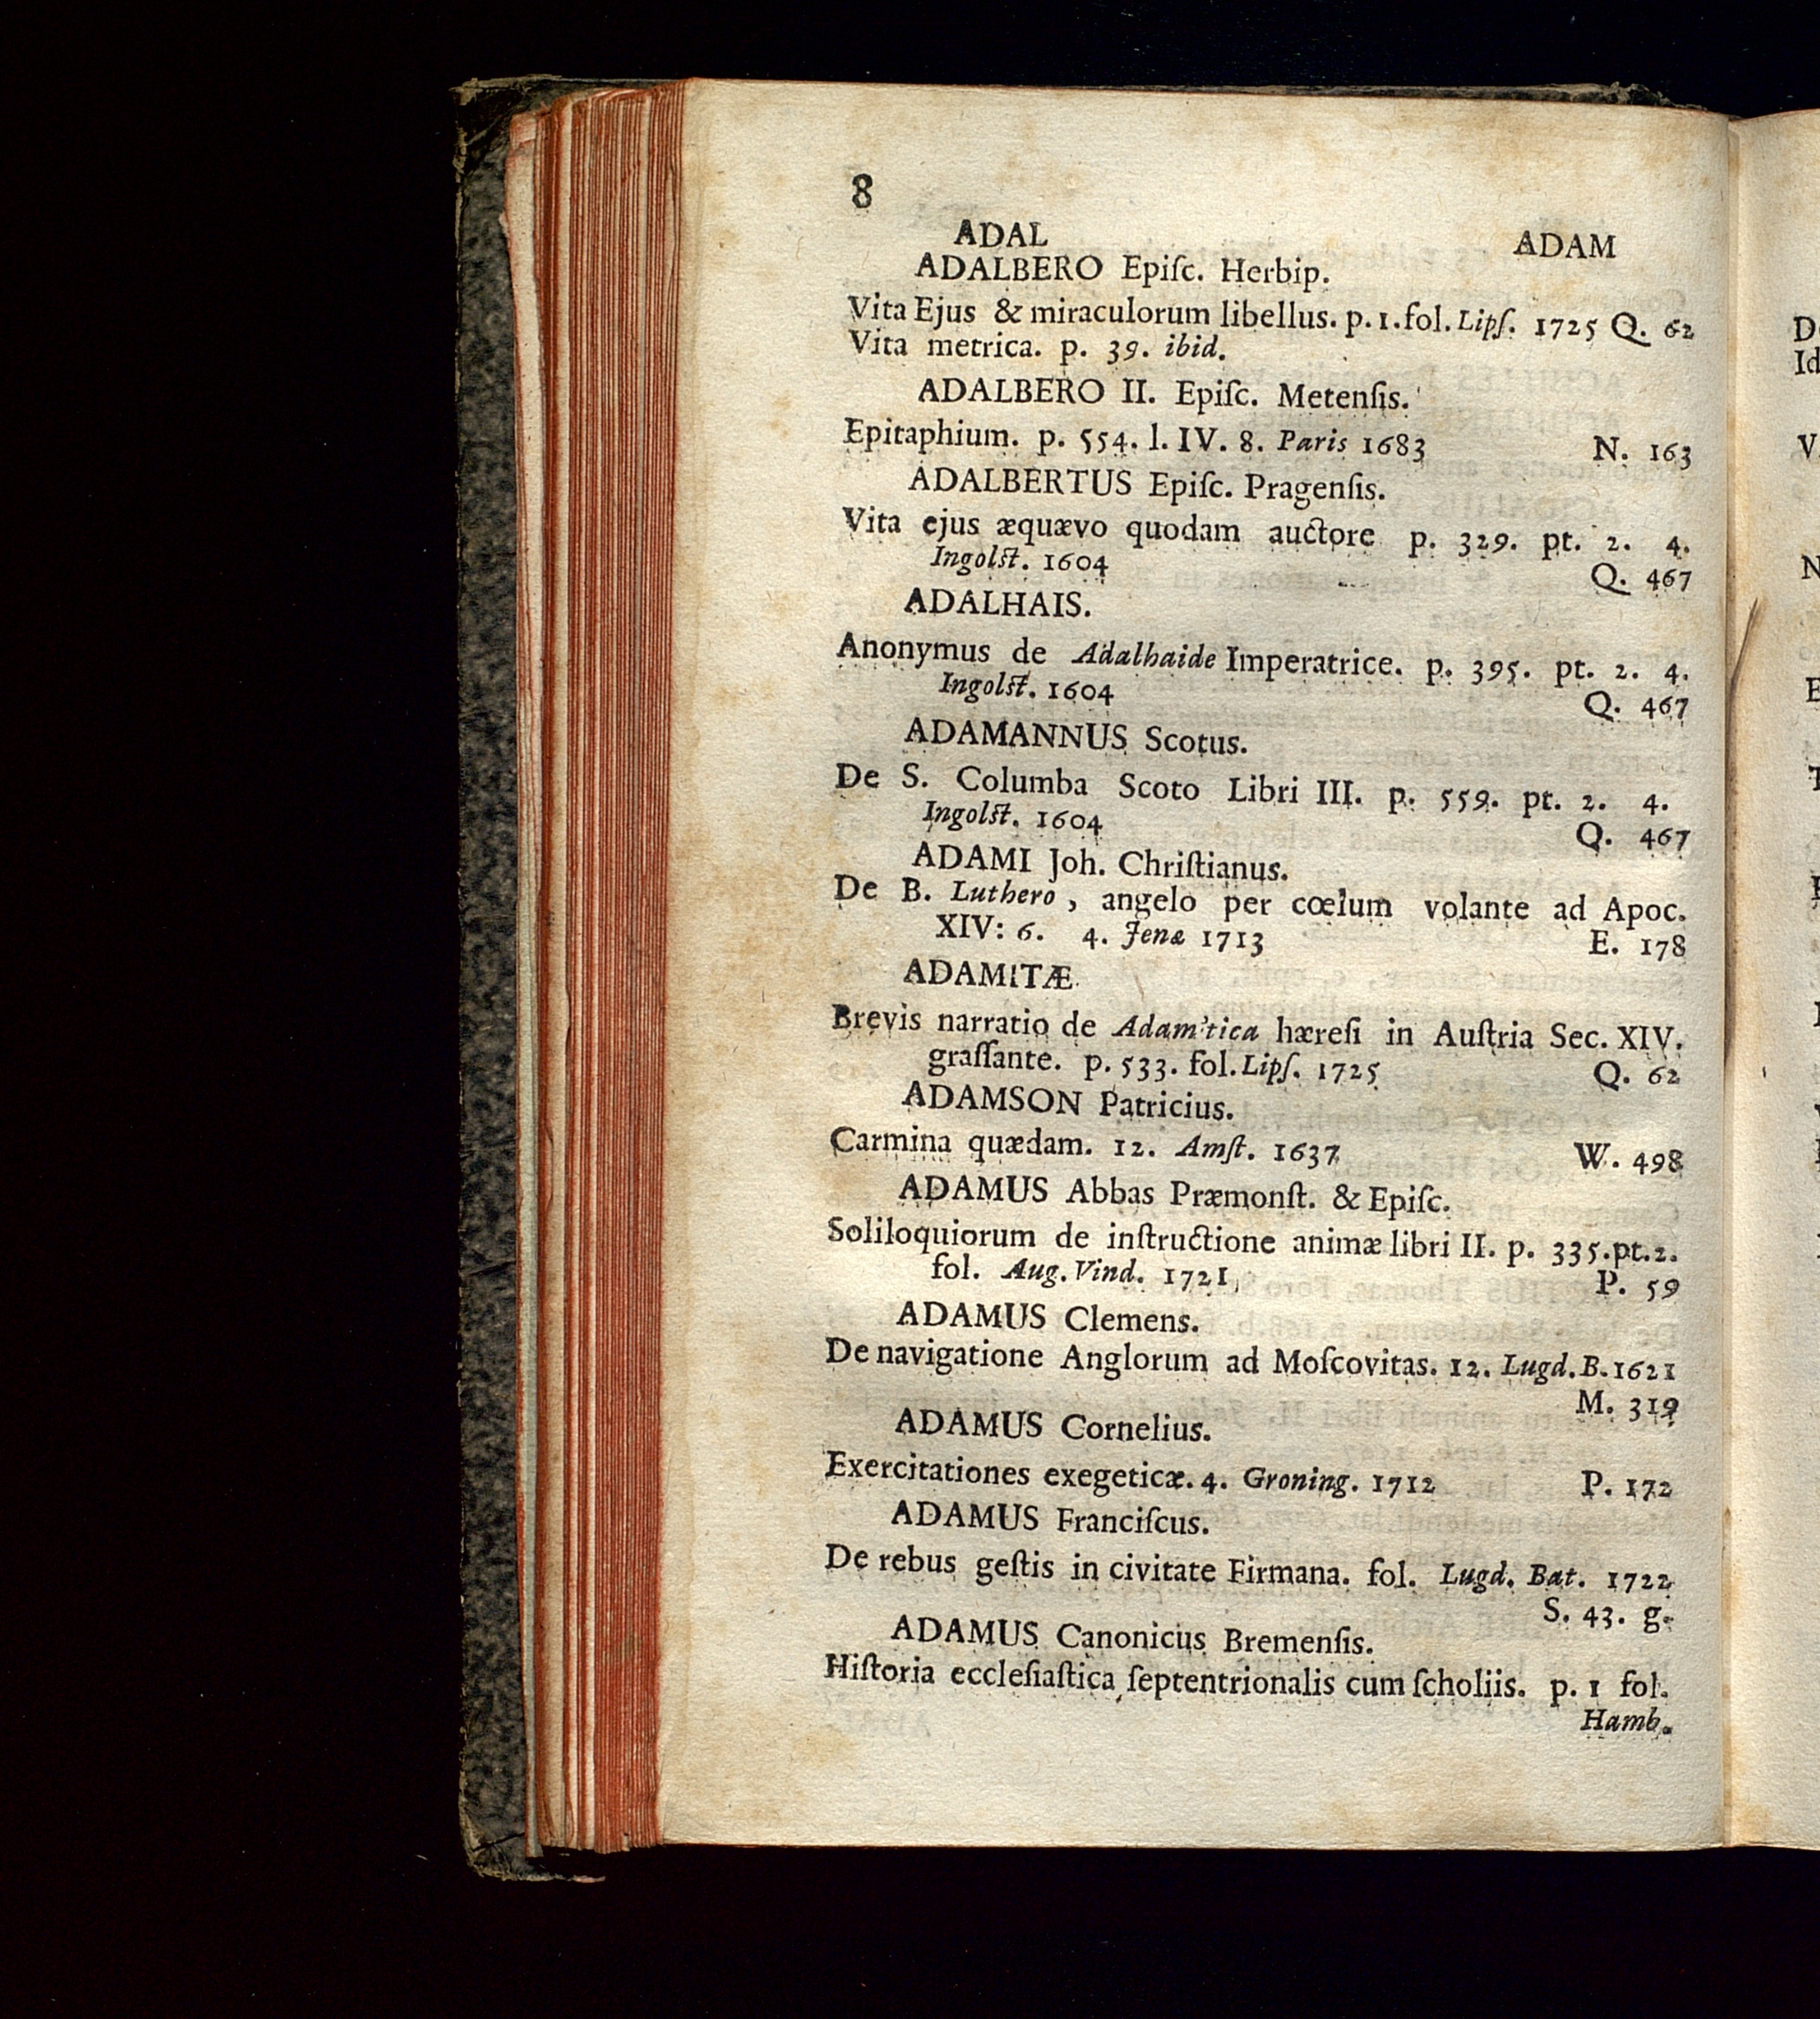 8
ADAL ADAM
ADALBERO Epiſc. Herbip.
Vita Ejus & miraculorum libellus. p. 1. fol. Lipſ. 1725 Q. 62
Vita metrica. p. 39. ibid.
ADALBERO II. Epiſc. Metenſis.
Epitaphium. p. 554. l. IV. 8. Paris 1683 N. 163
ADALBERTUS Epiſc. Pragenſis.
Vita ejus æquævo quodam auctore p. 329. pt. 2. 4.
Ingolſt. 1604 Q. 467
ADALHAIS.
Anonymus de Adalhaide Imperatrice. p. 395. pt. 2. 4.
Ingolſt. 1604 Q. 467
ADAMANNUS Scotus.
De S. Columba Scoto Libri III. p. 559. pt. 2. 4.
Ingolſt. 1604 Q. 467
ADAMI Joh. Chriſtianus.
De B. Luthero, angelo per cœlum volante ad Apoc.
XIV: 6. 4. Jenæ 1713 E. 178
ADAMITÆ
Brevis narratio de Adam'tica hæreſi in Auſtria Sec. XIV.
graſſante. p. 533. fol. Lipſ. 1725 Q. 62
ADAMSON Patricius.
Carmina quædam. 12. Amſt. 1637 W. 498
ADAMUS Abbas Præmonſt. & Epiſc.
Soliloquiorum de inſtructione animæ libri II. p. 335. pt. 2.
fol. Aug. Vind. 1721 P. 59
ADAMUS Clemens.
De navigatione Anglorum ad Moſcovitas. 12. Lugd. B. 1621
M. 319
ADAMUS Cornelius.
Exercitationes exegeticæ. 4. Groning. 1712 P. 172
ADAMUS Franciſcus.
De rebus geſtis in civitate Firmana. fol. Lugd. Bat. 1722
S. 43. g.
ADAMUS Canonicus Bremenſis.
Hiſtoria eccleſiaſtica ſeptentrionalis cum ſcholiis. p. 1 fol.
Hamb.